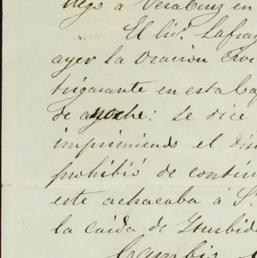 llegó a Veracruz en
El Lic. Lafra
ayer la oracion civi
trigarante en esta Ca
de anoche: Se dice
imprimiendo el dis
prohibió de contin
este achacaba á S.
la caida de Yturbid
Cambis